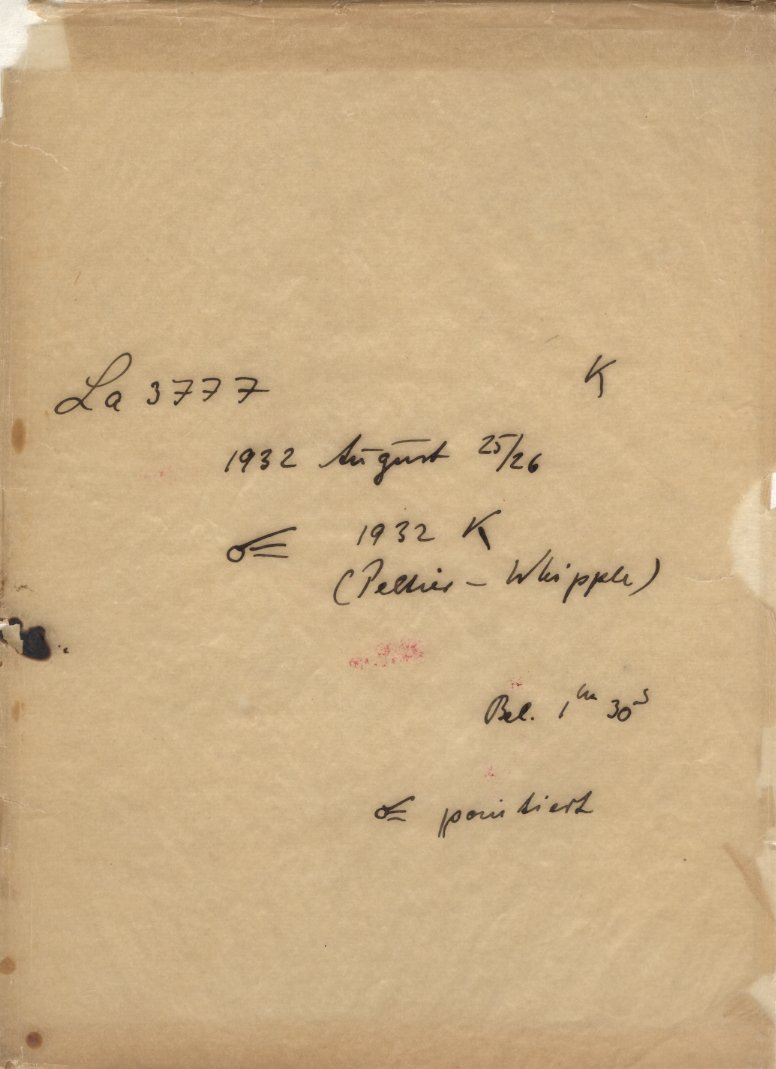 La 3777 K
1932 August 25/26
☄ 1932 K
(Peltier – Whipple)
Bel. 1ᵐ 30ˢ
☄ pointiert